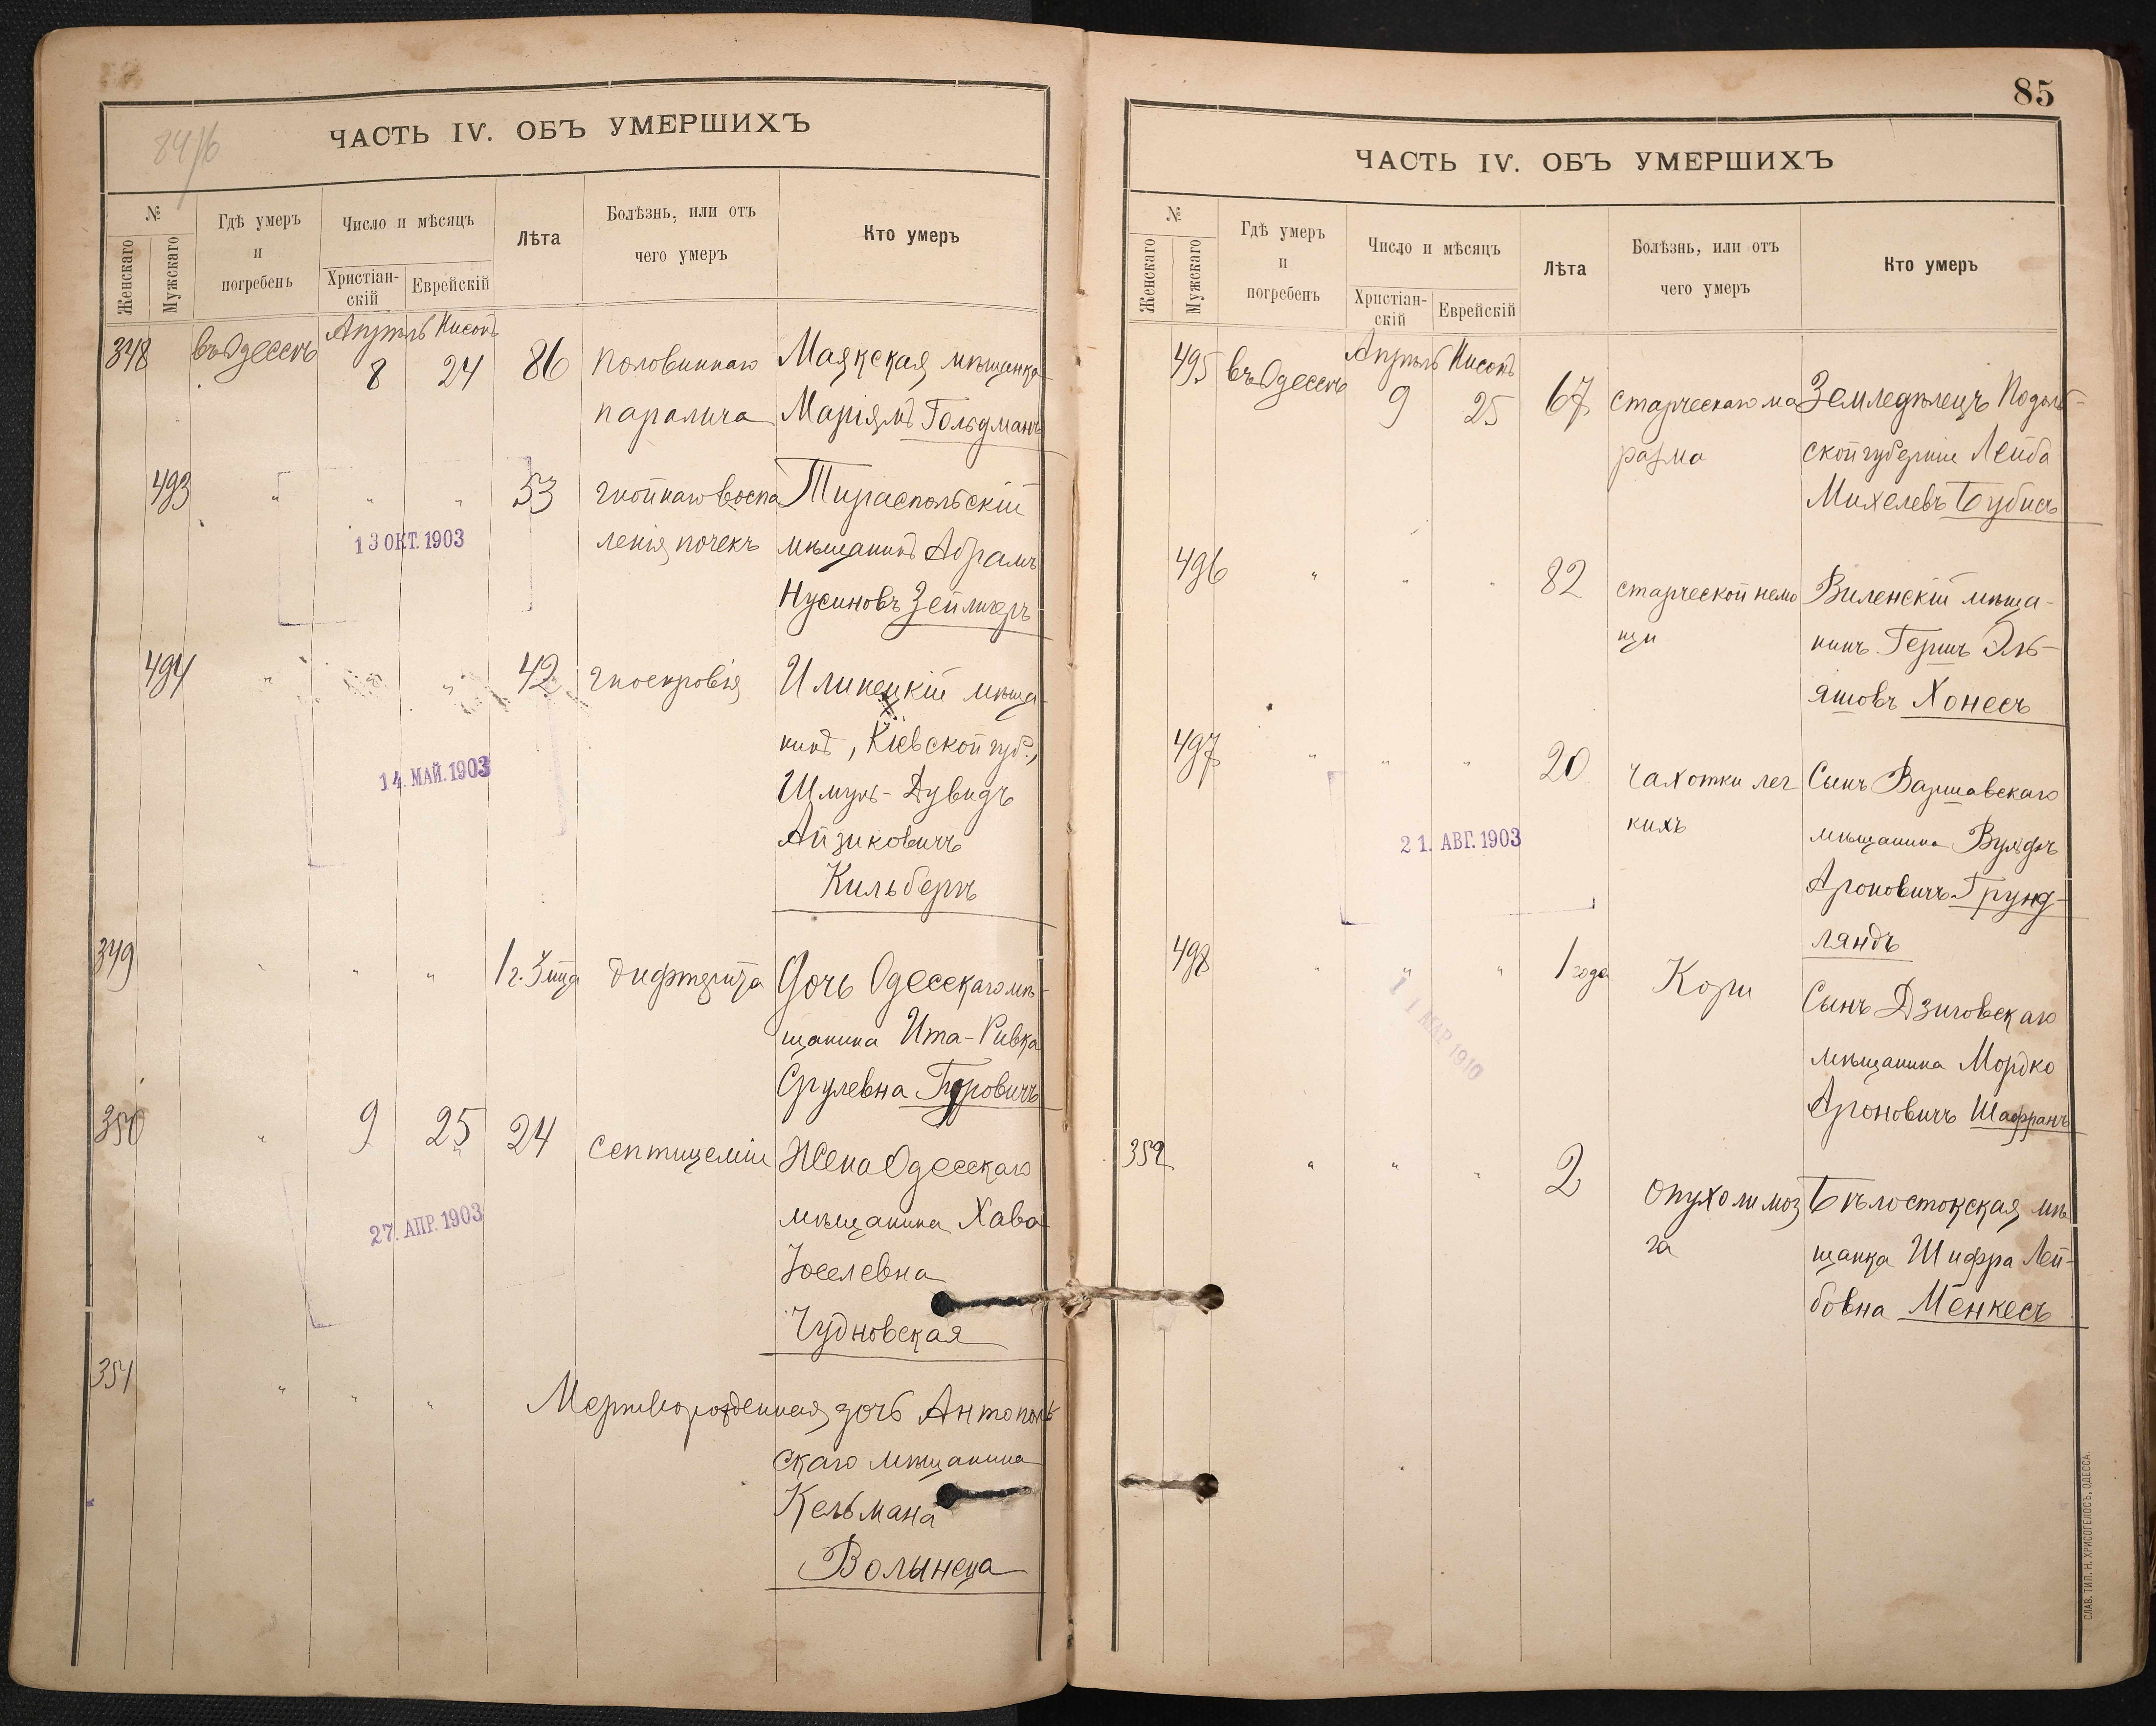 84/б
ЧАСТЬ IV. ОБЪ УМЕРШИХЪ
№
Женскаго
Мужскаго
Гдѣ умеръ
и
погребенъ
Число и мѣсяцъ
Христіан-
скій
Еврейскій
Лѣта
Болѣзнь, или отъ
чего умеръ
Кто умеръ
348 въ Одессѣ Апрѣль 8 Нисонъ 24 86 половиннаго Маякская мѣщанка
паралича Маріямъ Гольдманъ
493 " " " 53 гнойнаго воспа Тираспольскій
13 ОКТ. 1903
ленія почекъ мѣщанинъ Абрамъ
Нусиновъ Зейликеръ
494 " " " 42 гноекровія Илинецкій мѣща-
нинъ, Кіевской губ.,
14. МАЙ. 1903
Шмуль-Дувидъ
Айзиковичъ
Кильбергъ
349 " " " 1 г. 3 мца дифтерита Дочь Одесскаго мѣ-
щанина Ита-Ривка
Срулевна Гуровичъ
350 " 9 25 24 септицеміи Жена Одесскаго
мѣщанина Хава
27. АПР. 1903
Іоселевна
Чудновская
351 " " " Мертворожденная дочь Антополь
скаго мѣщанина
Кельмана
Волынеца
85
ЧАСТЬ IV. ОБЪ УМЕРШИХЪ
№
Женскаго
Мужскаго
Гдѣ умеръ
и
погребенъ
Число и мѣсяцъ
Христіан-
скій
Еврейскій
Лѣта
Болѣзнь, или отъ
чего умеръ
Кто умеръ
495 въ Одессѣ Апрѣль 9 Нисонъ 25 67 старческаго ма Земледѣлецъ Подоль-
разма ской губерніи Лейба
Михелевъ Бубисъ
496 " " " 82 старческой немо Виленскій мѣща-
щи нинъ Гершъ Эль-
яшовъ Хонесъ
497 " " " 20 чахотки лег Сынъ Варшавскаго
кихъ мѣщанина Вульфъ
21. АВГ. 1903
Ароновичъ Грунд-
ляндъ
498 " " " 1 года Кори Сынъ Дзиговскаго
11 МАР 1910
мѣщанина Мордко
Ароновичъ Шафранъ
352 " " " 2 опухоли моз Бѣлостокская мѣ
га щанка Шифра Лей-
бовна Менкесъ
СЛАВ. ТИП. Н. ХРИСОГЕЛОСЪ, ОДЕССА.